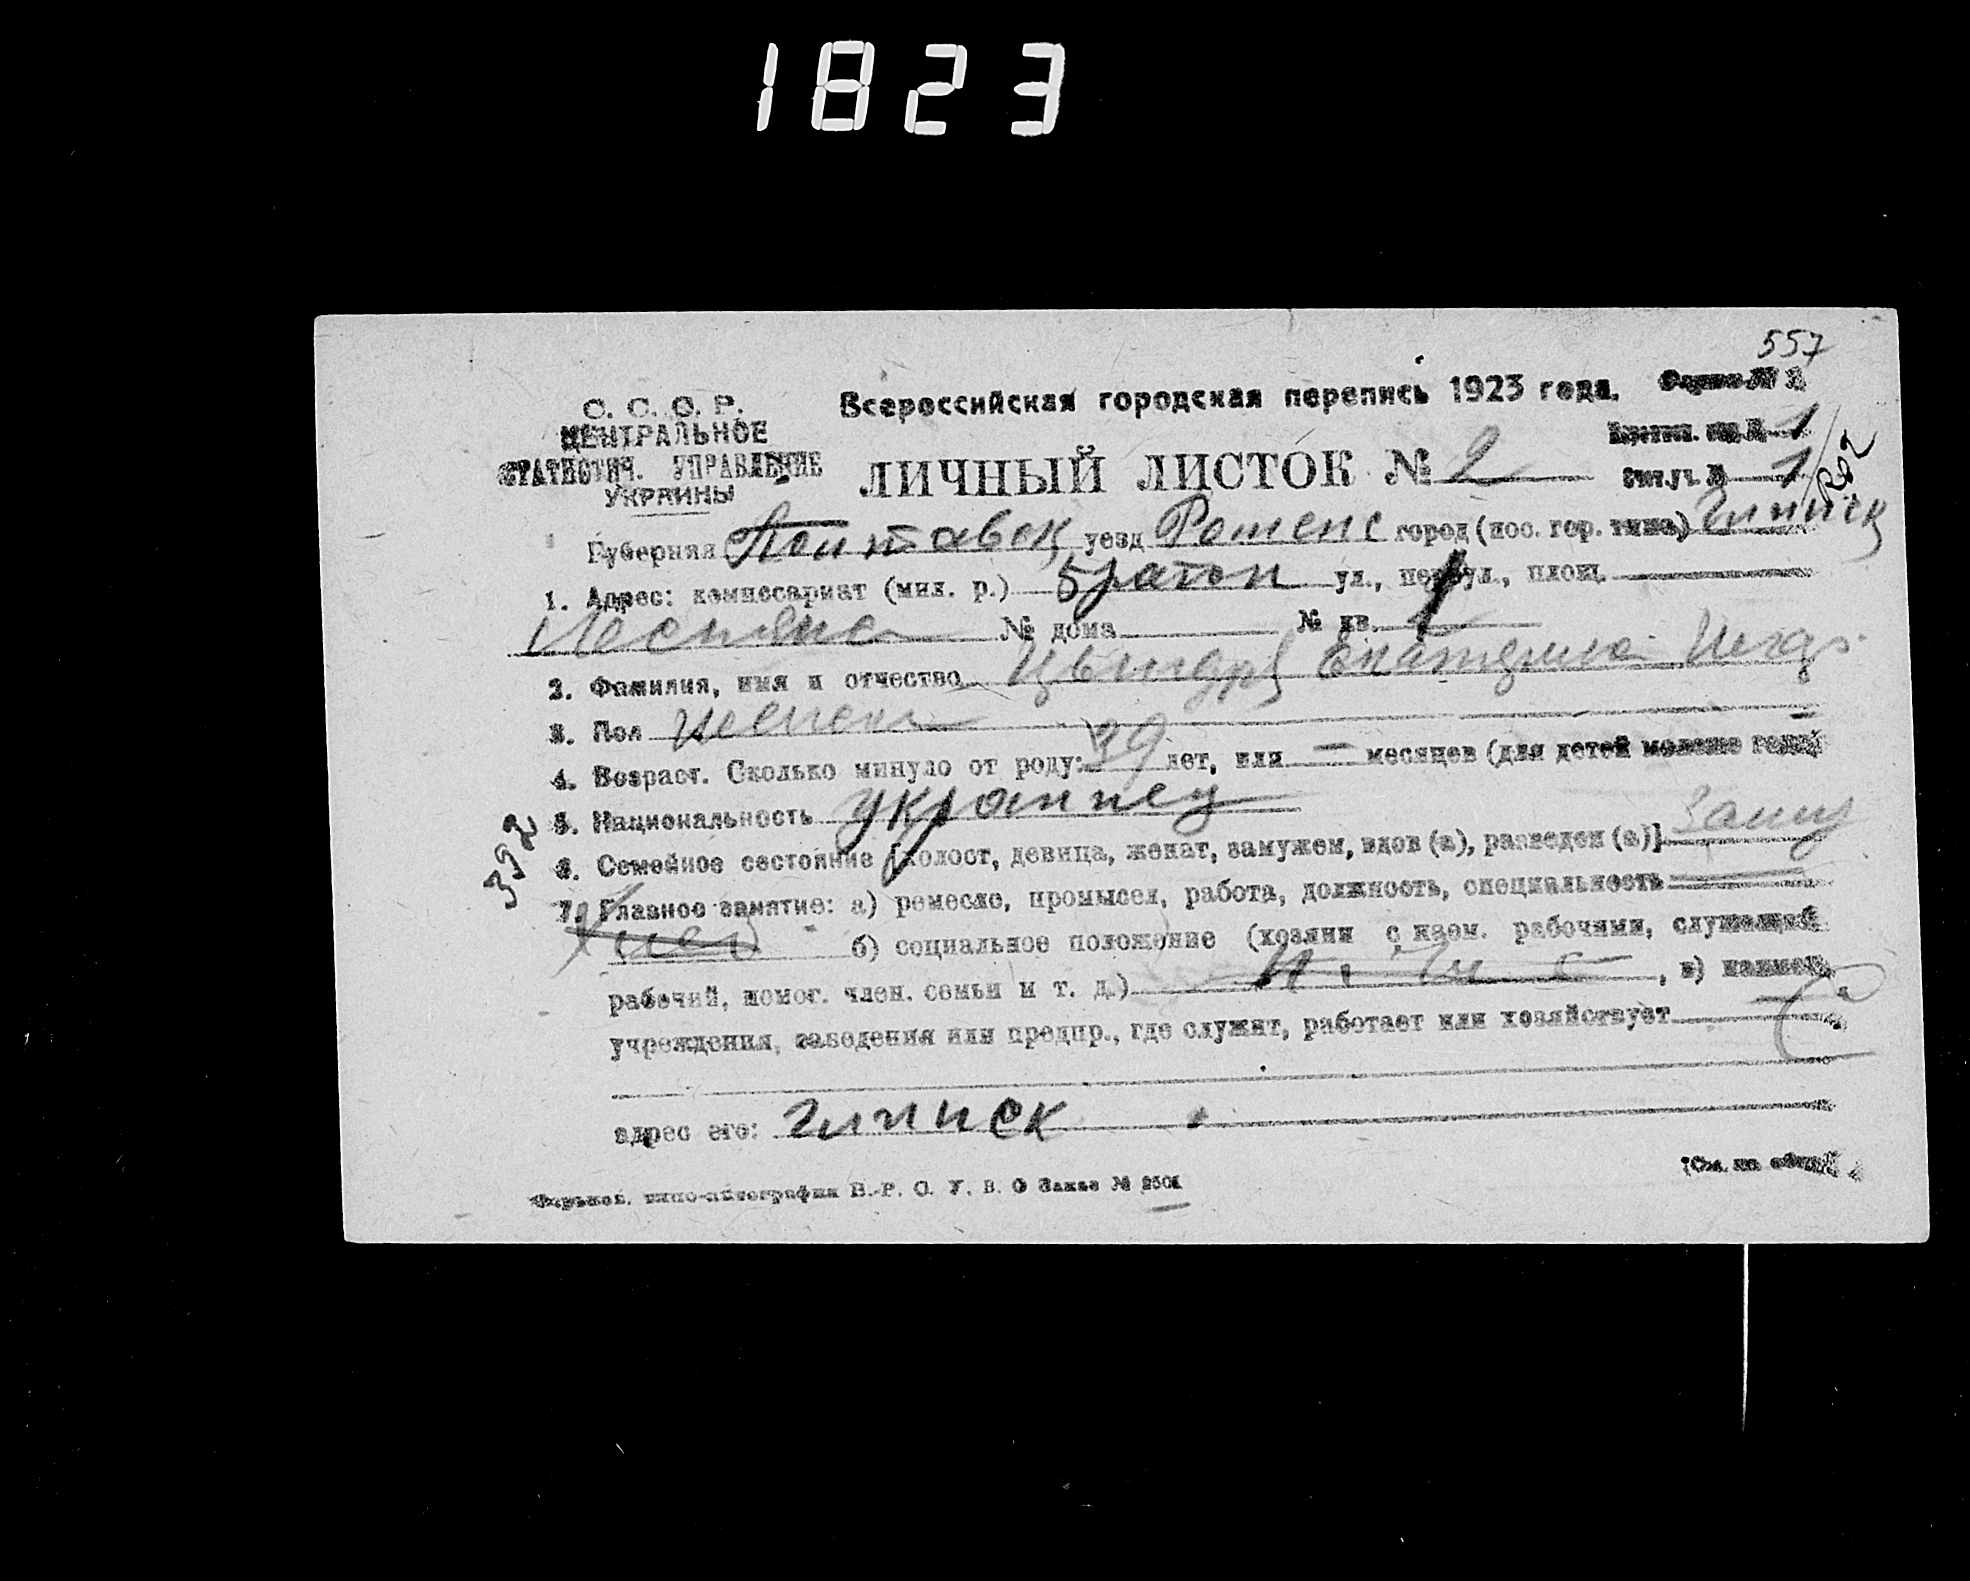 1823
557
С. С. С. Р.
ЦЕНТРАЛЬНОЕ
СТАТИСТИЧ. УПРАВЛЕНИЕ
УКРАИНЫ
Всероссийская городская перепись 1923 года.
ЛИЧНЫЙ ЛИСТОК № 2
1
Счет.уч. № 1
Губерния Полтавск уезд Роменс город (пос. гор. типа) Глинск
1. Адрес: комиссариат (мил. р.) 5 район ул., переул., площ.
№ дома № кв. 1
2. Фамилия, имя и отчество Екатерина
3. Пол женск
4. Возраст. Сколько минуло от роду: 39 лет, или — месяцев (для детей моложе года)
5. Национальность украинец
392
6. Семейное состояние [холост, девица, женат, замужем, вдов (а), разведен (а)] Замуж
7. Главное занятие: а) ремесло, промысел, работа, должность, специальность
б) социальное положение (хозяин с наем. рабочими, служащий
рабочий, помог. член. семьи и т. д.) , в) наимен.
учреждения, заведения или предпр., где служит, работает или хозяйствует
адрес его: глинск
(См. на обор.)
типо-литография В. Р. О. У. В. О Заказ № 2501